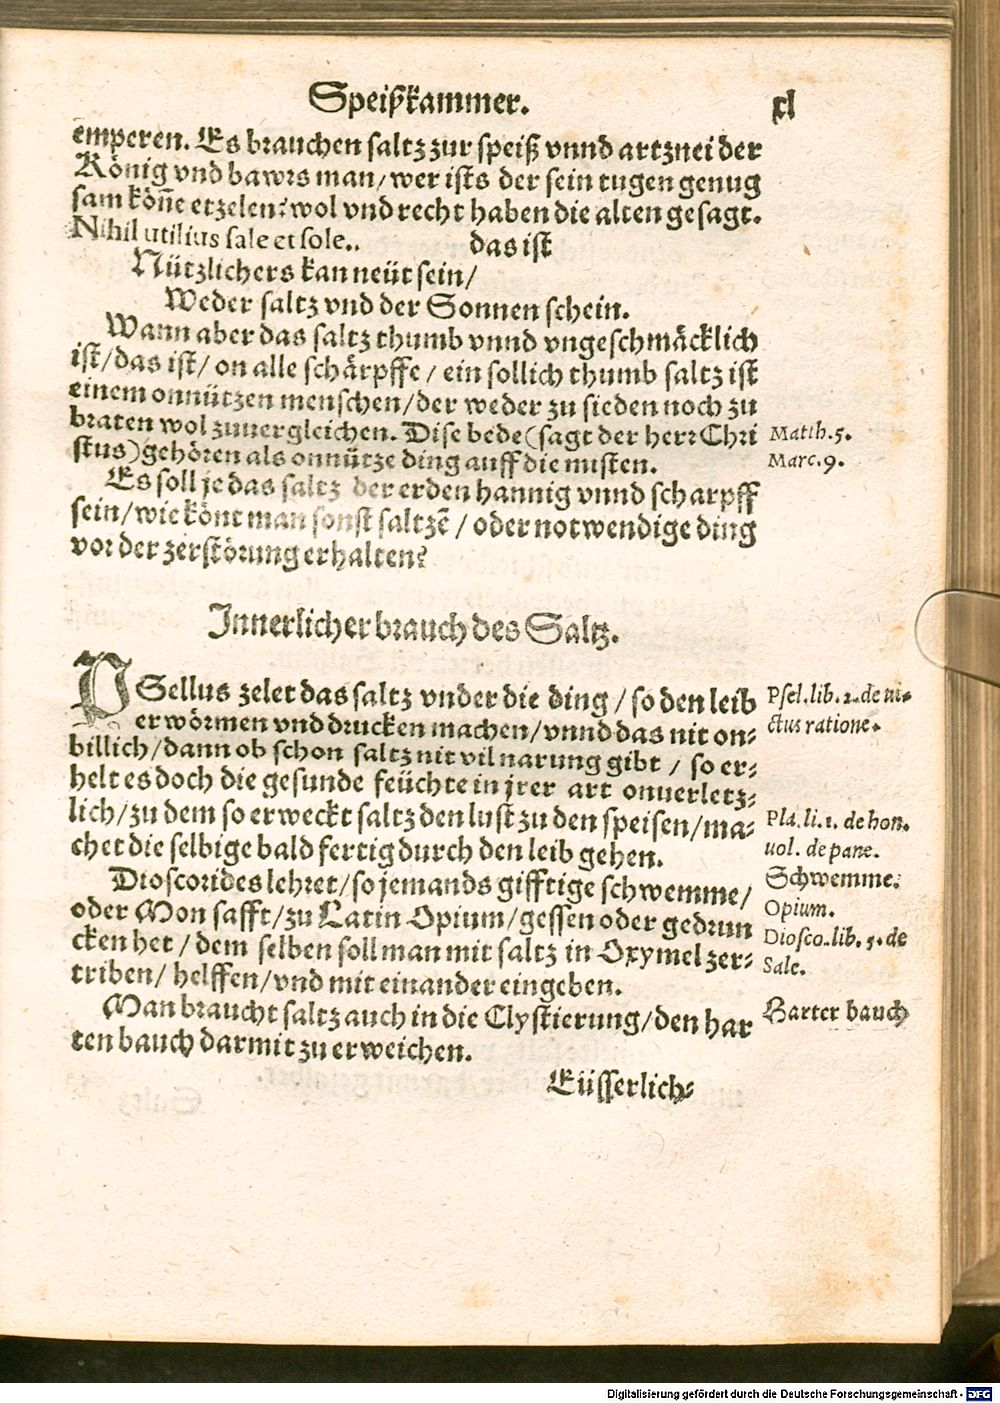 Speißkammer.
xl
emperen. Es brauchen saltz zur speiß vnnd artznei der
König vnd bawrs man/wer ists der sein tugen genug
sam könne etzelen? wol vnd recht haben die alten gesagt.
Nihil utilius sale et sole.. das ist
Nützlichers kan neüt sein/
Weder saltz vnd der Sonnen schein.
Wann aber das saltz thumb vnnd vngeschmäcklich
ist/das ist/on alle schärpffe/ein sollich thumb saltz ist
einem onnützen menschen/der weder zu sieden noch zu
braten wol zuuergleichen. Dise bede(sagt der herr Chri
Matth. 5.
stus)gehören als onnütze ding auff die misten.
Marc. 9.
Es soll je das saltz der erden hannig vnnd scharpff
sein/wie könt man sonst saltzē/oder notwendige ding
vor der zerstörung erhalten?
Innerlicher brauch des Saltz.
PSellus zelet das saltz vnder die ding/so den leib
Psel. lib. 2. de ui-
erwörmen vnd drucken machen/vnnd das nit on-
ctus ratione.
billich/dann ob schon saltz nit vil narung gibt/so er-
helt es doch die gesunde feüchte in jrer art onuerletz-
lich/zu dem so erweckt saltz den lust zu den speisen/ma-
Pla. li. 1. de hon.
chet die selbige bald fertig durch den leib gehen.
uol. de pane.
Dioscorides lehret/so jemands gifftige schwemme/
Schwemme.
oder Mon safft/zu Latin Opium/gessen oder gedrun
Opium.
cken het/dem selben soll man mit saltz in Oxymel zer-
Diosco. lib. 5. de
triben/helffen/vnd mit einander eingeben.
Sale.
Man braucht saltz auch in die Clystierung/den har
Harter bauch
ten bauch darmit zu erweichen.
Eüsserlich-
Digitalisierung gefördert durch die Deutsche Forschungsgemeinschaft - DFG